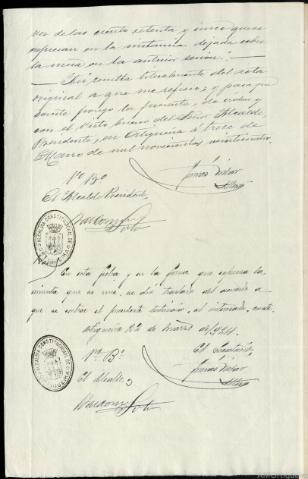 ven de las ciento setenta y cinco que se
expresan en la instancia dejada sobre
la mesa en la anterior sesión.
Así resulta literalmente del acta
original a que me refiero, y para que
conste pongo la presente, de orden y
con el visto bueno del Señor Alcalde
Presidente, en Ortigueira á trece de
Marzo de mil novecientos veinticuatro.
Vº Bº
El Alcalde Presidente,
En esta fecha, y en la forma que expresa la
minuta que se une, se dió traslado del acuerdo a
que se contrae el precedente testimonio, al interesado
Ortigueira 22 de marzo de 1924.
Vº Bº
El Alcalde,
El Secretario,